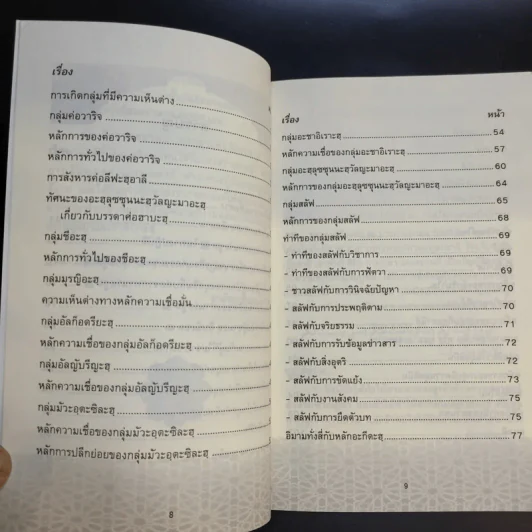 เรื่อง
การเกิดกลุ่มที่มีความเห็นต่าง
กลุ่มค่อวาริจ
หลักการของค่อวาริจ
หลักการทั่วไปของค่อวาริจ
การสังหารค่อลีฟะฮฺอาลี
ทัศนะของอะฮฺลุซซุนนะฮฺวัลญะมาอะฮฺ
เกี่ยวกับบรรดาศ่อฮาบะฮฺ
กลุ่มชีอะฮฺ
หลักการทั่วไปของชีอะฮฺ
กลุ่มมุรญิอะฮฺ
ความเห็นต่างทางหลักความเชื่อมั่น
กลุ่มอัลก็อดรียะฮฺ
หลักความเชื่อของกลุ่มอัลก็อดรียะฮฺ
กลุ่มอัลญับรียะฮฺ
หลักความเชื่อของกลุ่มอัลญับรียะฮฺ
กลุ่มมัวะอฺตะซิละฮฺ
หลักความเชื่อของกลุ่มมัวะอฺตะซิละฮฺ
หลักการปลีกย่อยของกลุ่มมัวะอฺตะซิละฮฺ
8
เรื่อง หน้า
กลุ่มอะชาอิเราะฮฺ 54
หลักความเชื่อของกลุ่มอะชาอิเราะฮฺ 57
กลุ่มอะฮฺลุซซุนนะฮฺวัลญะมาอะฮฺ 60
หลักการของกลุ่มอะฮฺลุซซุนนะฮฺวัลญะมาอะฮฺ 64
กลุ่มสลัฟ 65
หลักการของกลุ่มสลัฟ 68
ท่าทีของกลุ่มสลัฟ 69
- ท่าทีของสลัฟกับวิชาการ 69
- ท่าทีของสลัฟกับการฟัตวา 69
- ชาวสลัฟกับการวินิจฉัยปัญหา 70
- สลัฟกับการประพฤติตาม 70
- สลัฟกับจริยธรรม 71
- สลัฟกับการรับข้อมูลข่าวสาร 72
- สลัฟกับสิ่งอุตริ 72
- สลัฟกับการขัดแย้ง 73
- สลัฟกับงานสังคม 75
- สลัฟกับการยึดตัวบท 75
อิมามทั้งสี่กับหลักอะกีดะฮฺ 77
9